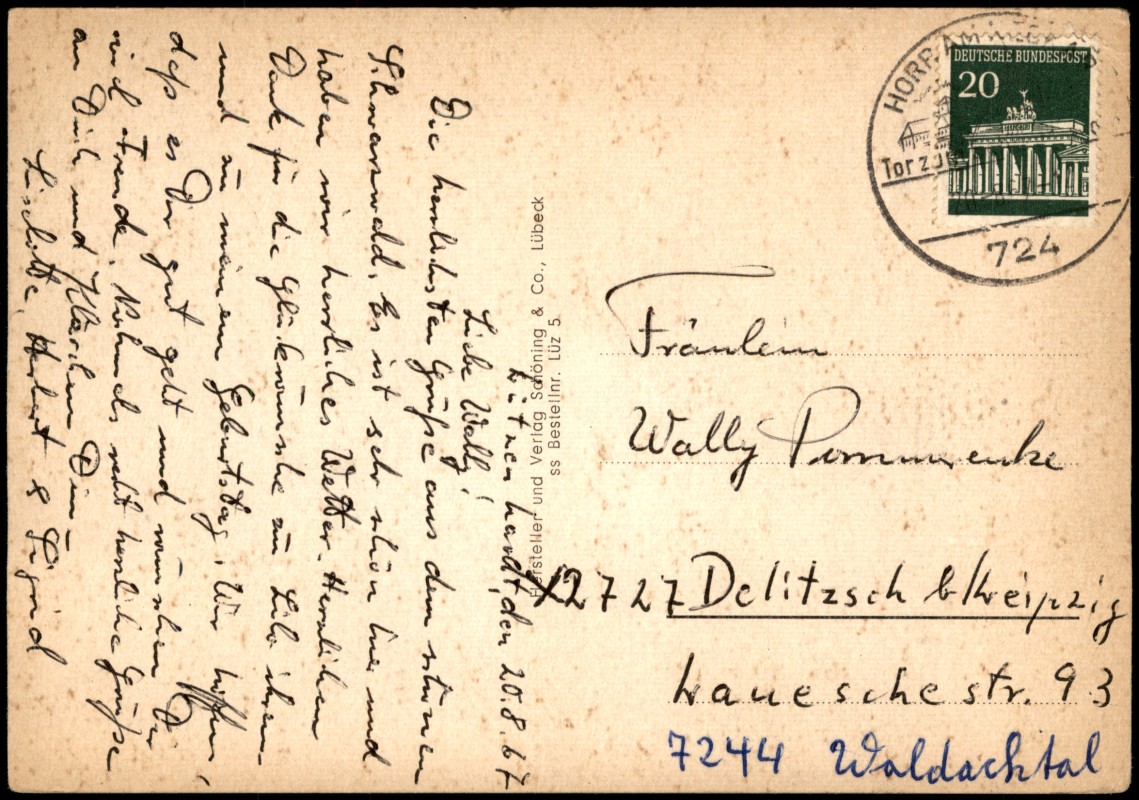 Lützenhardt, den 20.8.67
Liebe Wally!
Die herzlichsten Grüße aus dem schönen
Schwarzwald. Es ist sehr schön hier und
haben wir herrliches Wetter. Herzlichen
Dank für die Glückwünsche zu
und zu meinem Geburtstag. Wir hoffen,
daß es Dir gut geht und wünschen Dir
viel Freude. Nochmals recht herzliche Grüße
an Dich und Klärchen
Liselotte, Herbert & Sigrid
Hersteller und Verlag Schöning & Co., Lübeck
ss Bestellnr. Lüz 5
HORB AM NECKAR
Tor zum
724
DEUTSCHE BUNDESPOST
20
Fräulein
Wally Pommrenke
X2727 Delitzsch b/Leipzig
Lauesche str. 93
7244 Waldachtal